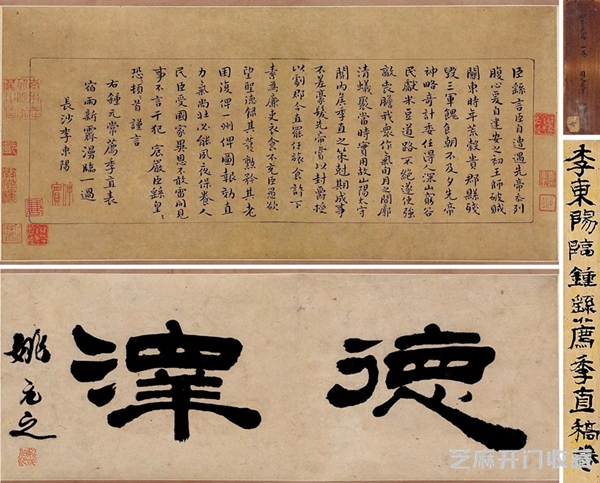 臣繇言臣自遭遇先帝忝列
腹心爰自建安之初王師破賊
關東時年荒穀貴郡縣殘
毀三軍餽饟朝不及夕先帝
神略奇計委任得人深山窮谷
民獻米豆道路不絕遂使強
敵喪膽我衆作氣旬月之間廓
清蟻聚當時實用故山陽太守
關內侯季直之策剋期成事
不差豪髮先帝賞以封爵授
以劇郡今直罷任旅食許下
素為廉吏衣食不充臣愚欲
望聖德錄其舊勳矜其老
困復俾一州俾圖報効直
力氣尚壯必能夙夜保養人
民臣受國家異恩不敢雷同見
事不言干犯宸嚴臣繇皇〻
恐頓首謹言
右鍾元常薦季直表
宿雨新霽漫臨一過
長沙李東陽
李東陽臨鍾繇薦季直稿卷
德澤
姚元之
芝麻开门收藏